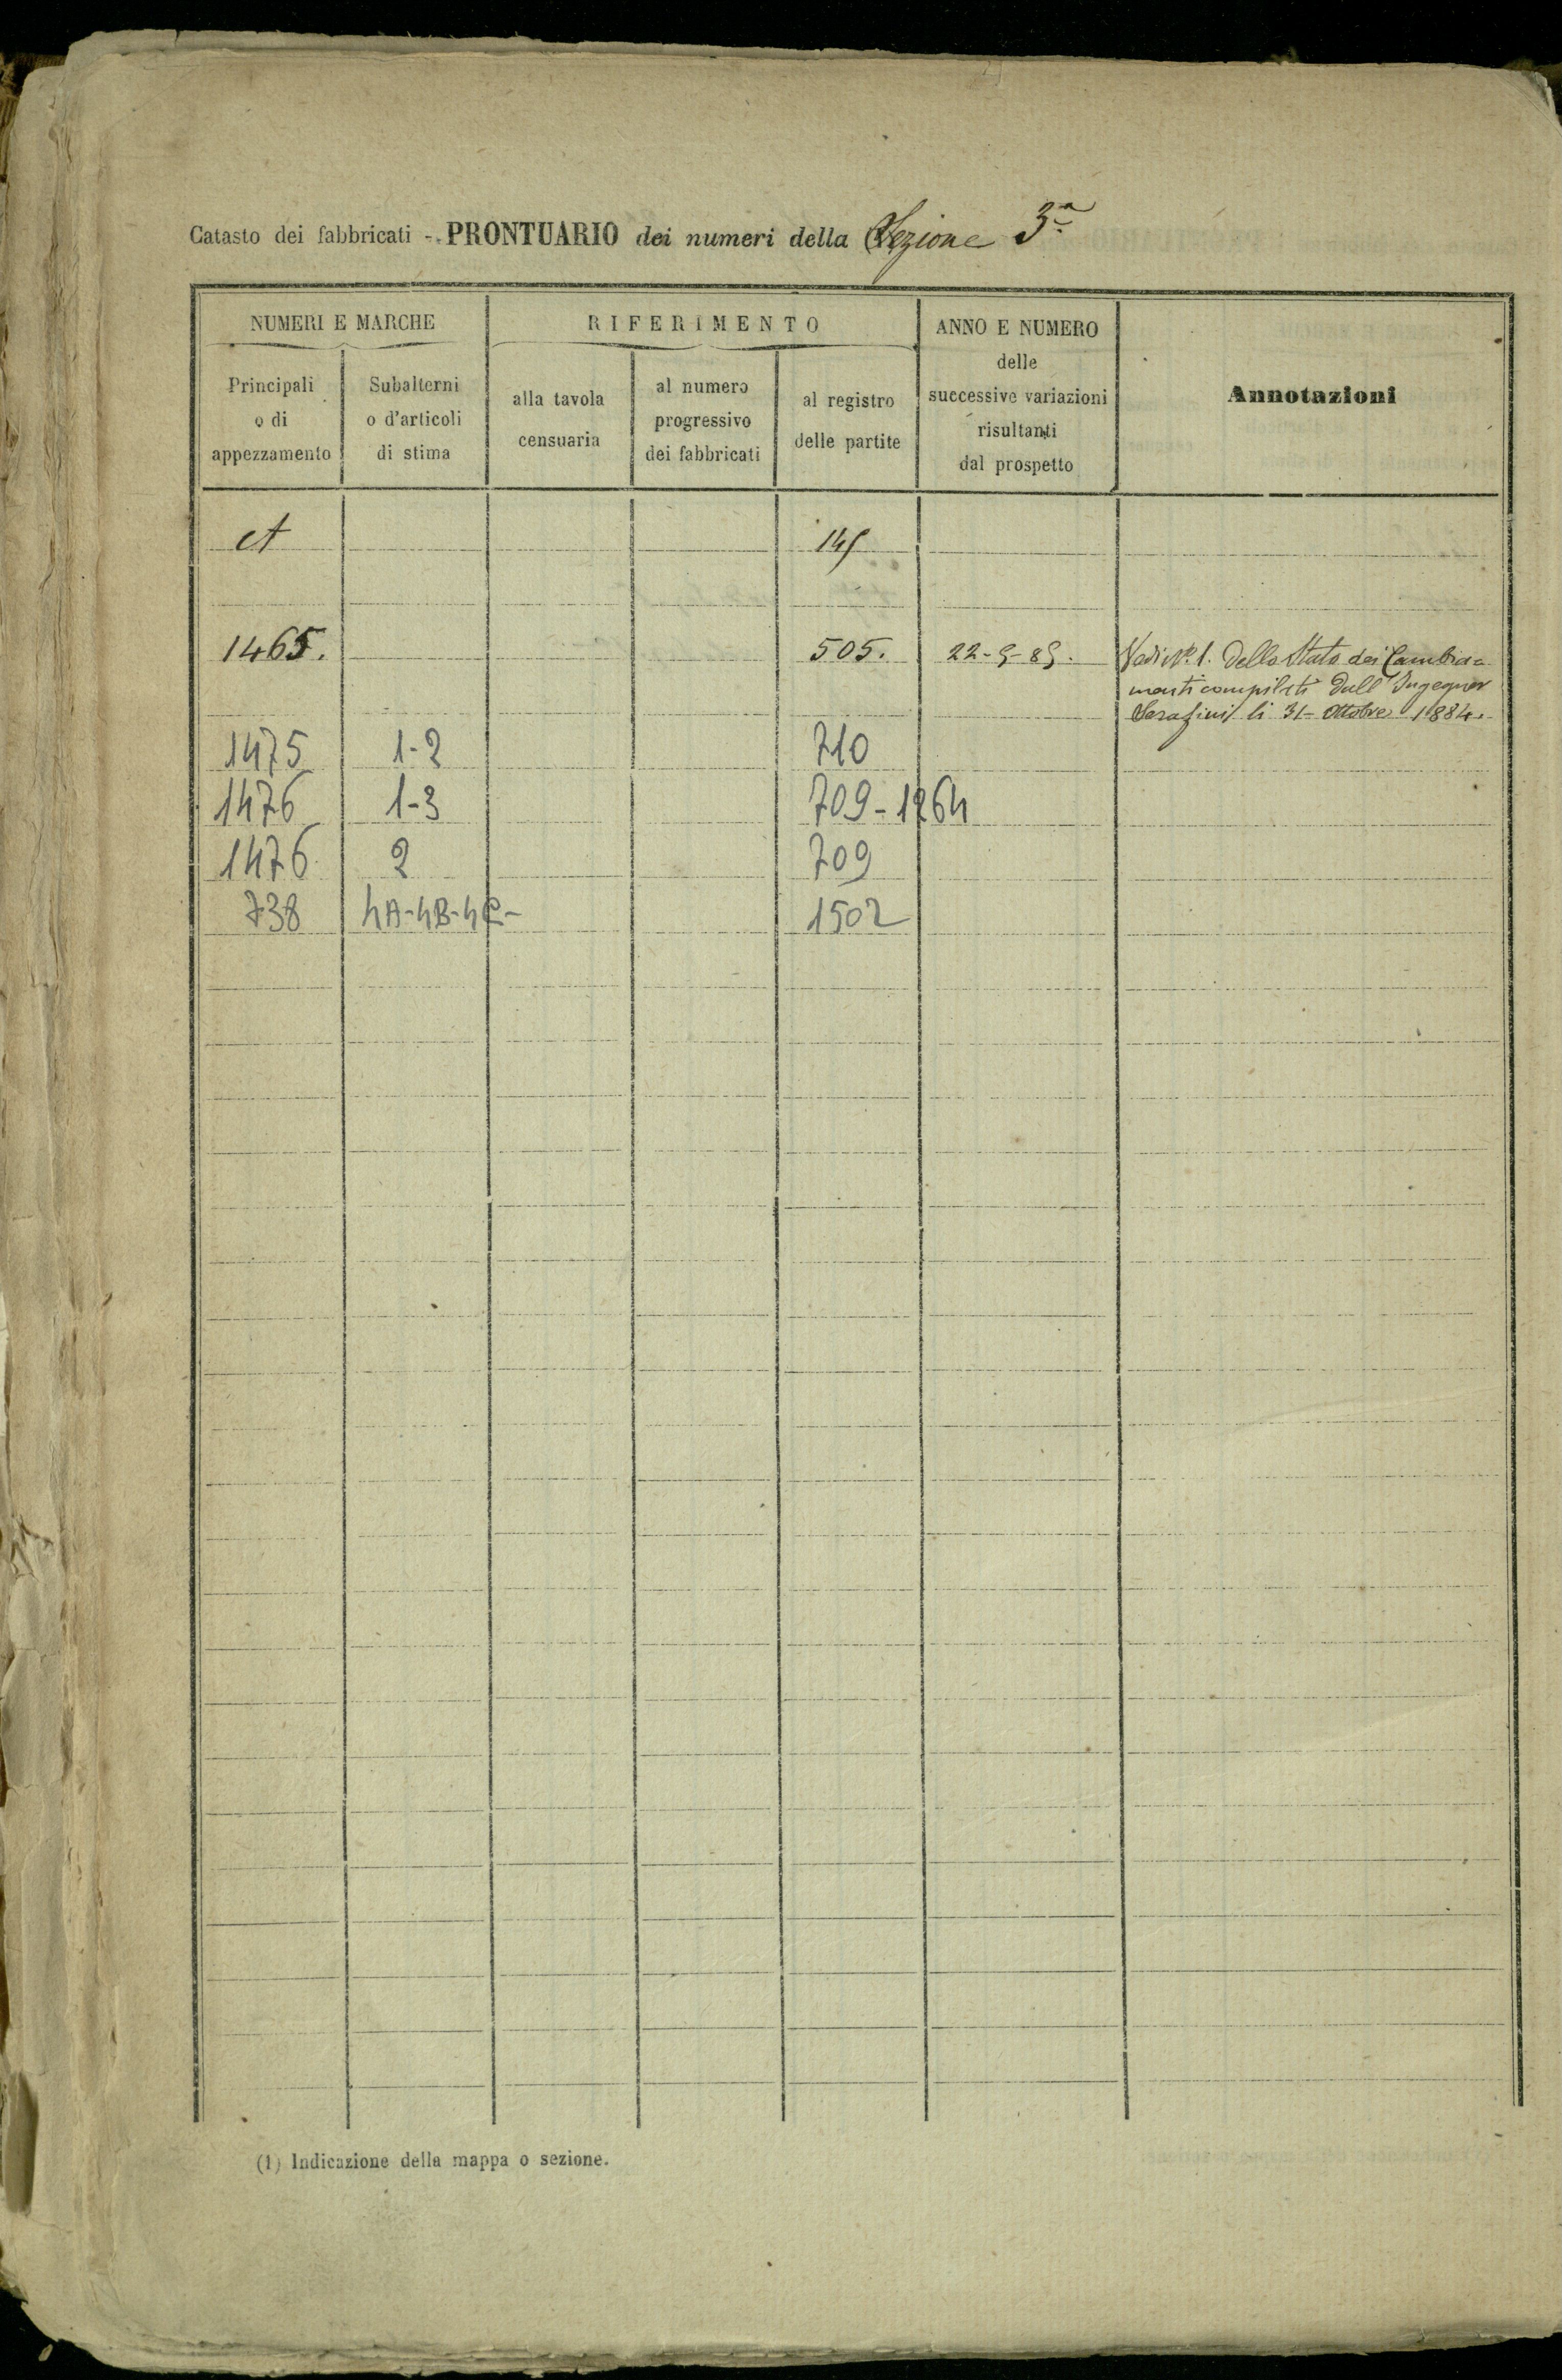 Catasto dei fabbricati - PRONTUARIO dei numeri della Sezione 3ª
NUMERI E MARCHE
RIFERIMENTO
ANNO E NUMERO
delle
successive variazioni
risultanti
dal prospetto
Annotazioni
Principali
o di
appezzamento
Subalterni
o d'articoli
di stima
alla tavola
censuaria
al numero
progressivo
dei fabbricati
al registro
delle partite
A
1465. 505. 22-5-85. Vedi Nº. 1. dello Stato dei Cambia=
menti compilati dall' Ingegner
Serafini li 31- Ottobre 1884.
1475 1-2 710
1476 1-3 709-1264
1476 2 709
738 4A-4B-4C- 1502
(1) Indicazione della mappa o sezione.